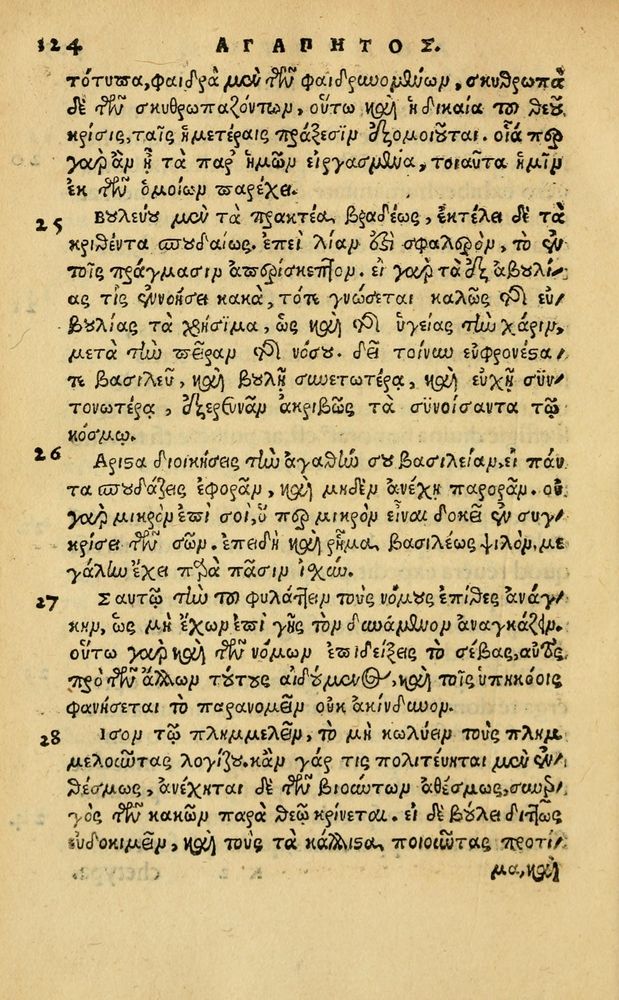 124 ΑΓΑΠΗΤΟΣ.
τότυπα, φαιδρὰ μὲν τῶν φαιδρυνομένων, σκυθρωπὰ
δὲ τῶν σκυθρωπαζόντων, οὕτω καὶ ἡ δικαία τοῦ θεοῦ
κρίσις, ταῖς ἡμετέραις πράξεσιν ἐξομοιοῦται. οἷά περ
γὰρ ἂν ᾖ τὰ παρ ἡμῶν εἰργασμένα, τοιαῦτα ἡμῖν
ἐκ τῶν ὁμοίων παρέχει.
25 Βουλεύου μὲν τὰ πρακτέα βραδέως, ἐκτέλει δὲ τὰ
κριθέντα σπουδαίως. ἐπεὶ λίαν ἐστὶ σφαλερὸν, τὸ ἐν
τοῖς πράγμασιν ἀπερίσκεπτον. εἰ γὰρ τὰ ἐξ ἀβουλί/
ας τὶς ἐννοήσει κακὰ, τότε γνώσεται καλῶς τῆς εὐ/
βουλίας τὰ χρήσιμα, ὡς καὶ τῆς ὑγείας τὴν χάριν,
μετὰ τὴν πεῖραν τῆς νόσου. δεῖ τοίνυν εὐφρονέστα/
τε βασιλεῦ, καὶ βουλῇ συνετωτέρᾳ, καὶ εὐχῇ σὺν/
τονωτέρᾳ, ἐξερευνᾶν ἀκριβῶς τὰ συνοίσαντα τῷ
κόσμῳ.
26 Αριστα διοικήσεις τὴν ἀγαθὴν σου βασιλείαν, εἰ πάν/
τα σπουδάζεις ἐφορᾶν, καὶ μηδὲν ἀνέχῃ παρορᾶν. οὐ
γὰρ μικρὸν ἐπὶ σοὶ, ὅ περ μικρὸν εἶναι δοκεῖ ἐν συγ/
κρίσει τῶν σῶν. ἐπειδὴ καὶ ῥῆμα βασιλέως ψιλὸν, με
γάλην ἔχει παρὰ πᾶσιν ἰσχύν.
27 Σαυτῷ τὴν τοῦ φυλάττειν τοὺς νόμους ἐπίθες ἀνάγ/
κην, ὡς μὴ ἔχων ἐπὶ γῆς τὸν δυνάμενον ἀναγκάζειν.
οὕτω γὰρ καὶ τῶν νόμων ἐπιδείξεις τὸ σέβας, αὐτὸς
πρὸ τῶν ἄλλων τούτους αἰδούμενος, καὶ τοῖς ὑπηκόοις
φανήσεται τὸ παρανομεῖν οὐκ ἀκίνδυνον.
28 Ισον τῷ πλημμελεῖν, τὸ μὴ κωλύειν τοὺς πλημ
μελοῦντας λογίζου. κἂν γάρ τις πολιτεύηται μὲν ἐν/
θέσμως, ἀνέχηται δὲ τῶν βιούντων ἀθέσμως, συνερ/
γὸς τῶν κακῶν παρὰ θεῷ κρίνεται. εἰ δὲ βούλει διττῶς
εὐδοκιμεῖν, καὶ τοὺς τὰ κάλλιστα ποιοῦντας προτί/
μα, καὶ